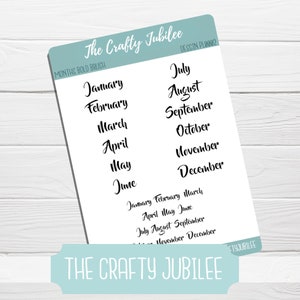 The Crafty Jubilee
MONTHS BOLD BRUSH
January July
February August
March September
April October
May November
June December
January February March
April May June
July August September
November December
THE CRAFTY JUBILEE